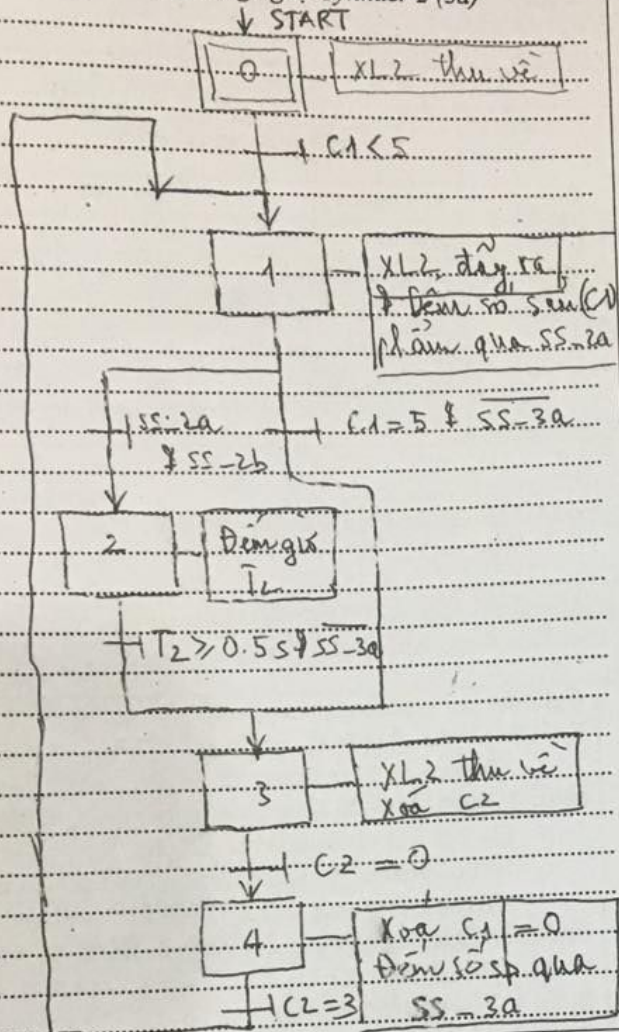 START
0
XL2 thu về
C1 < 5
1
XL2 đẩy ra
& Đếm số sản (C1)
phẩm qua SS_2a
SS_2a
& SS_2b
C1 = 5 & \overline{SS_3a}
2
Đếm giờ
T2
T2 ≥ 0.5s & \overline{SS_3a}
3
XL2 thu về
Xoá C2
C2 = 0
4
Xoá C1 = 0
Đếm số sp qua
SS_3a
C2 = 3